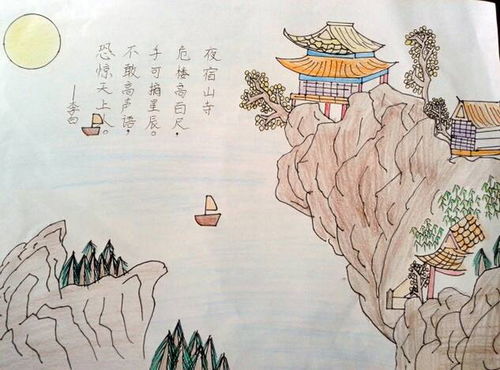 夜宿山寺
危楼高百尺，
手可摘星辰。
不敢高声语，
恐惊天上人。
—李白